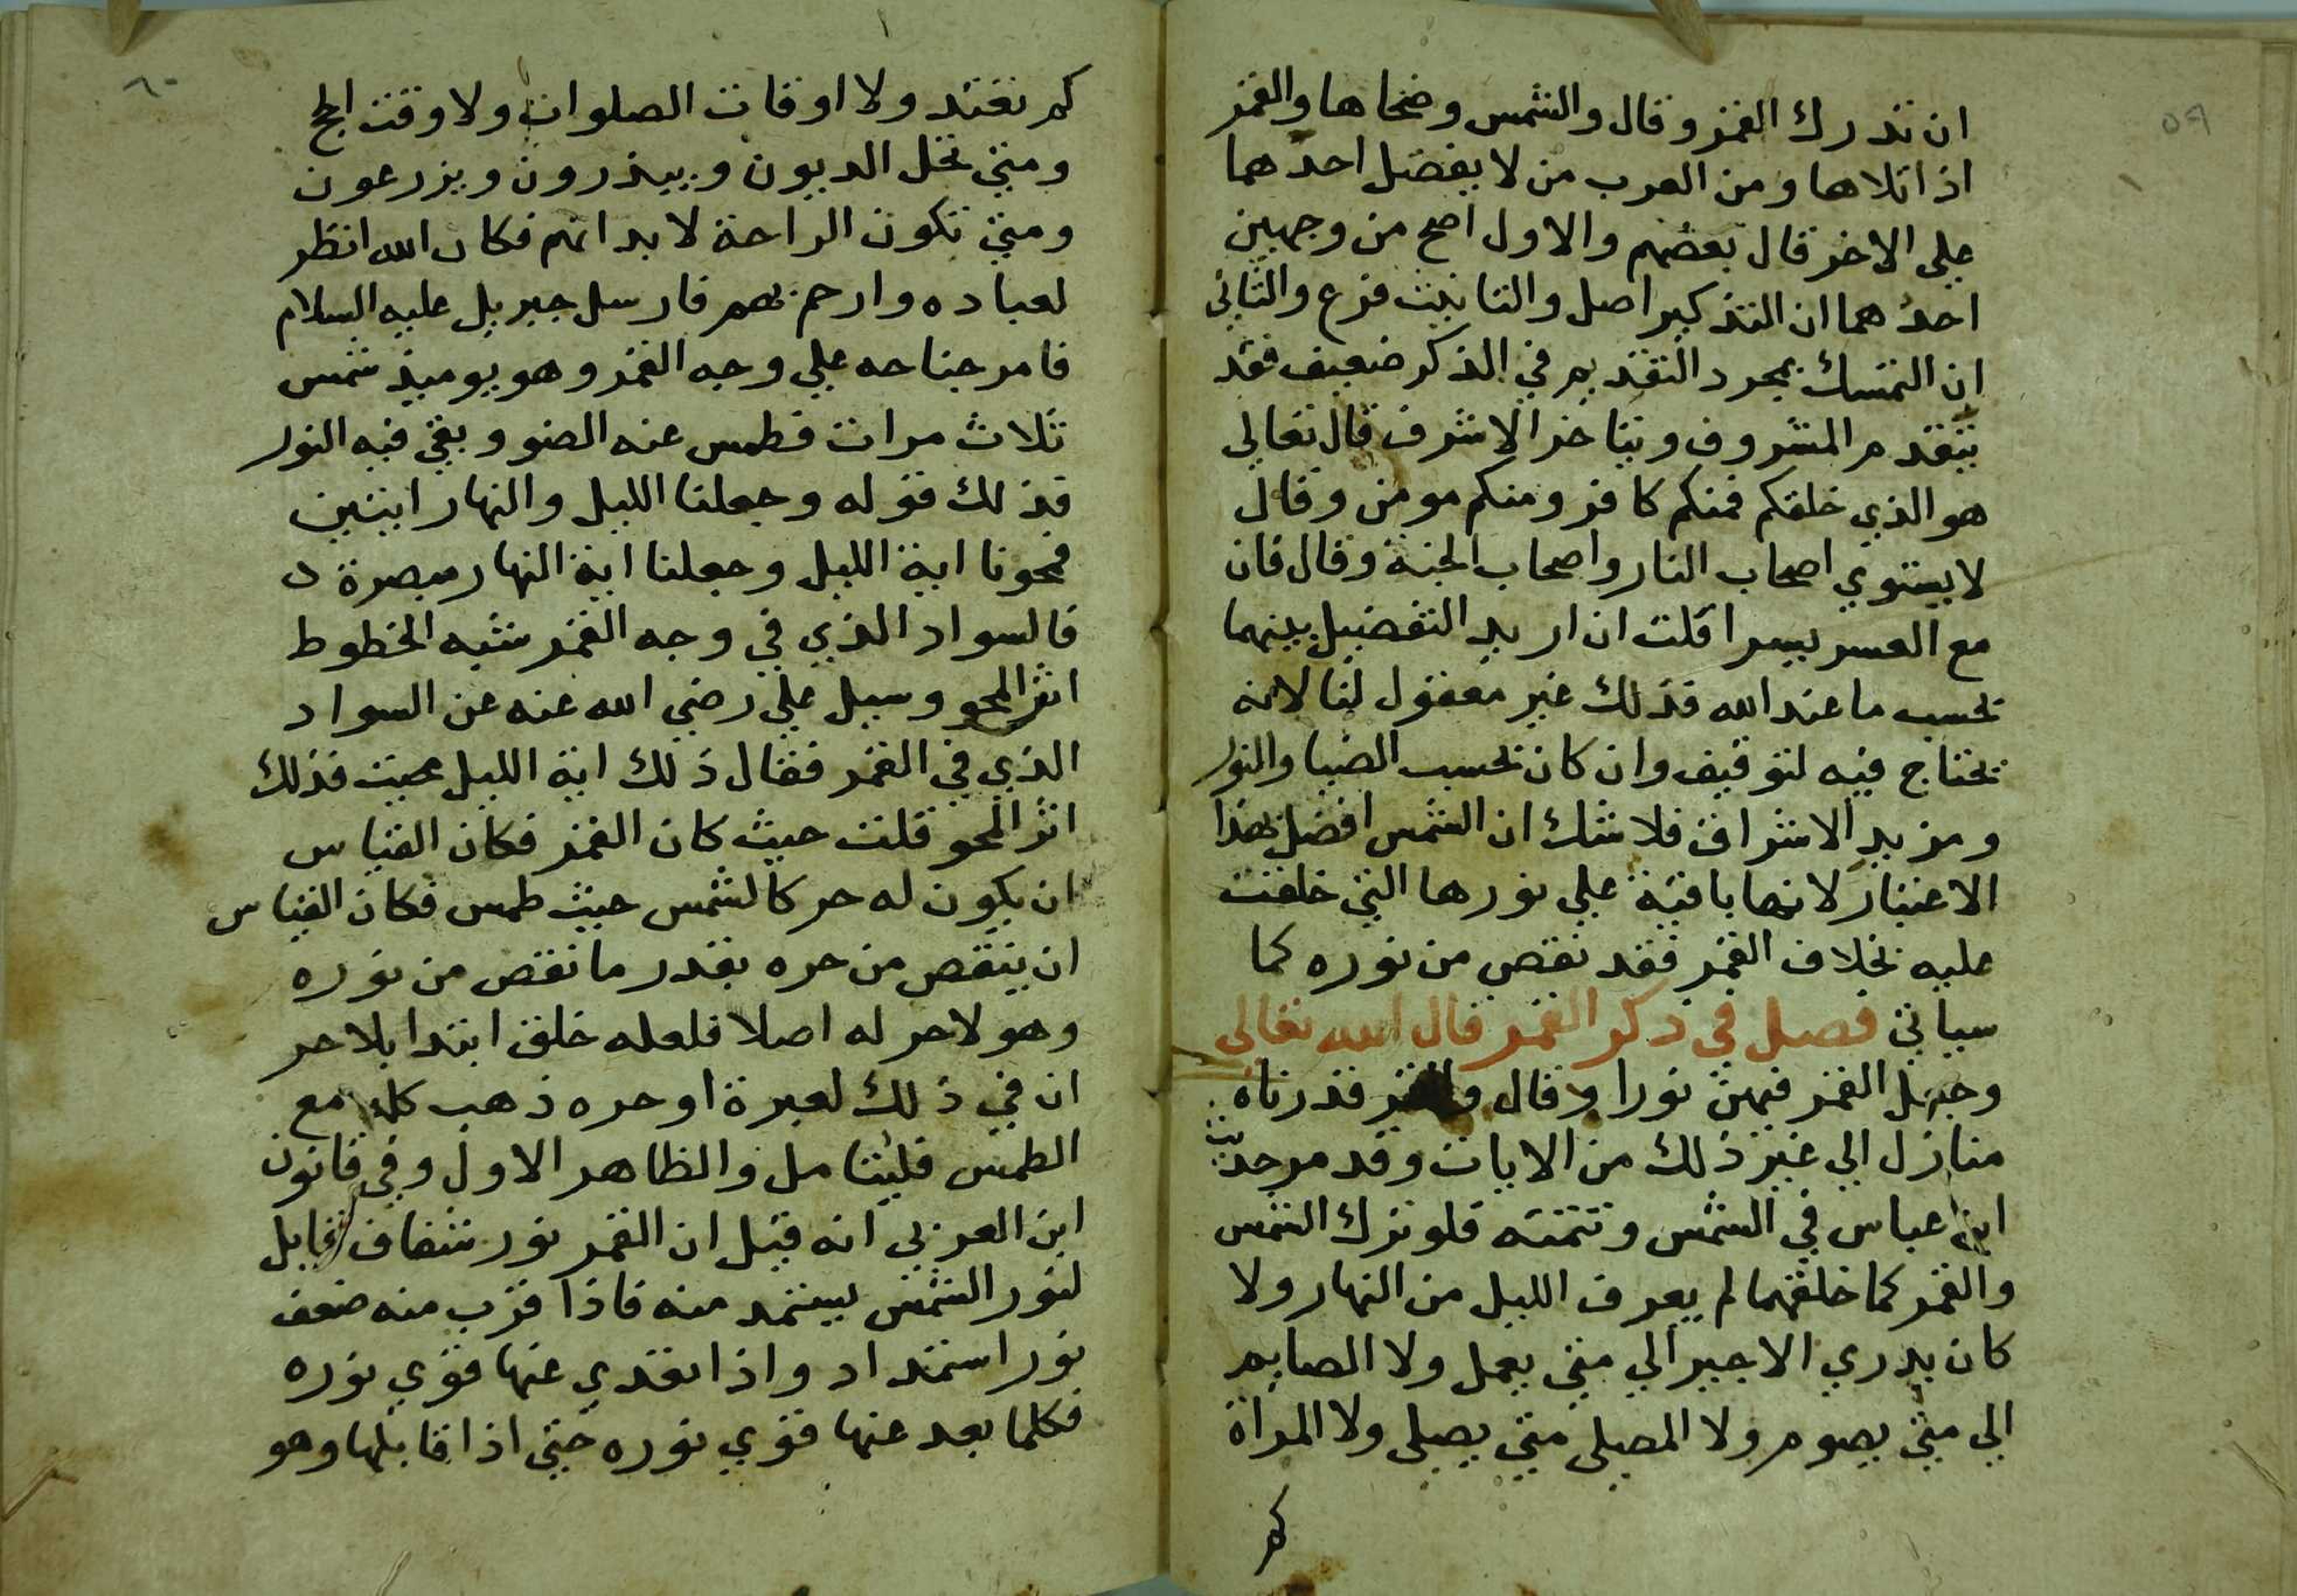 ٥٩
ان تدرك القمر وقال والشمس وضحاها والقمر
اذا تلاها ومن العرب من لا يفضل احدهما
علي الاخر قال بعضهم والاول اصح من وجهين
احدهما ان التذكير اصل والتانيث فرع والثاني
ان التمسك بمجرد التقديم في الذكر ضعيف فقد
يتقدم المشروف ويتاخر الاشرف قال تعالي
هو الذي خلقكم فمنكم كافر ومنكم مومن وقال
لا يستوي اصحاب النار واصحاب الجنة وقال فان
مع العسر يسرا قلت ان اريد التفضيل بينهما
بحسب ما عند الله فذلك غير معقول لنا لانه
يحتاج فيه لتوقيف وان كان بحسب الضيا والنور
ومزيد الاشراق فلا شك ان الشمس افضل بهذا
الاعتبار لانها باقية علي نورها التي خلقت
عليه بخلاف القمر فقد نقص من نوره كما
سياتي فصل في ذكر القمر قال الله تعالي
وجعل القمر فيهن نورا وقال والقمر قدرناه
منازل الي غير ذلك من الايات وقد مر حديث
ابن عباس في الشمس وتتمته فلو ترك الشمس
والقمر كما خلقهما لم يعرف الليل من النهار ولا
كان يدري الاجير الي متي يعمل ولا الصايم
الي متي يصوم ولا المصلي متي يصلي ولا المراة
كم
٦٠
كم تعتد ولا اوقات الصلوات ولا وقت الحج
ومتي تحل الديون ويبذرون ويزرعون
ومتي تكون الراحة لابدانهم فكان الله انظر
لعباده وارحم بهم فارسل جبريل عليه السلام
فامر جناحه علي وجه القمر وهو يوميذ شمس
ثلاث مرات فطمس عنه الضو وبقي فيه النور
فذلك قوله وجعلنا الليل والنهار ايتين
فمحونا اية الليل وجعلنا اية النهار مبصرة
فالسواد الذي في وجه القمر شبه الخطوط
اثر المحو وسيل علي رضي الله عنه عن السواد
الذي في القمر فقال ذلك اية الليل محيت فذلك
اثر المحو قلت حيث كان القمر فكان القياس
ان يكون له حر كالشمس حيث طمس فكان القياس
ان ينقص من حره بقدر ما نقص من نوره
وهو لا حر له اصلا فلعله خلق ابتدا بلا حر
ان في ذلك لعبرة او حره ذهب كله مع
الطمس فليتامل والظاهر الاول وفي قانون
ابن العربي انه قيل ان القمر نور شفاف قابل
لنور الشمس يستمد منه فاذا قرب منه ضعف
نور استمداد واذا تعدي عنها قوي نوره
فكلما بعد عنها قوي نوره حتي اذا قابلها وهو